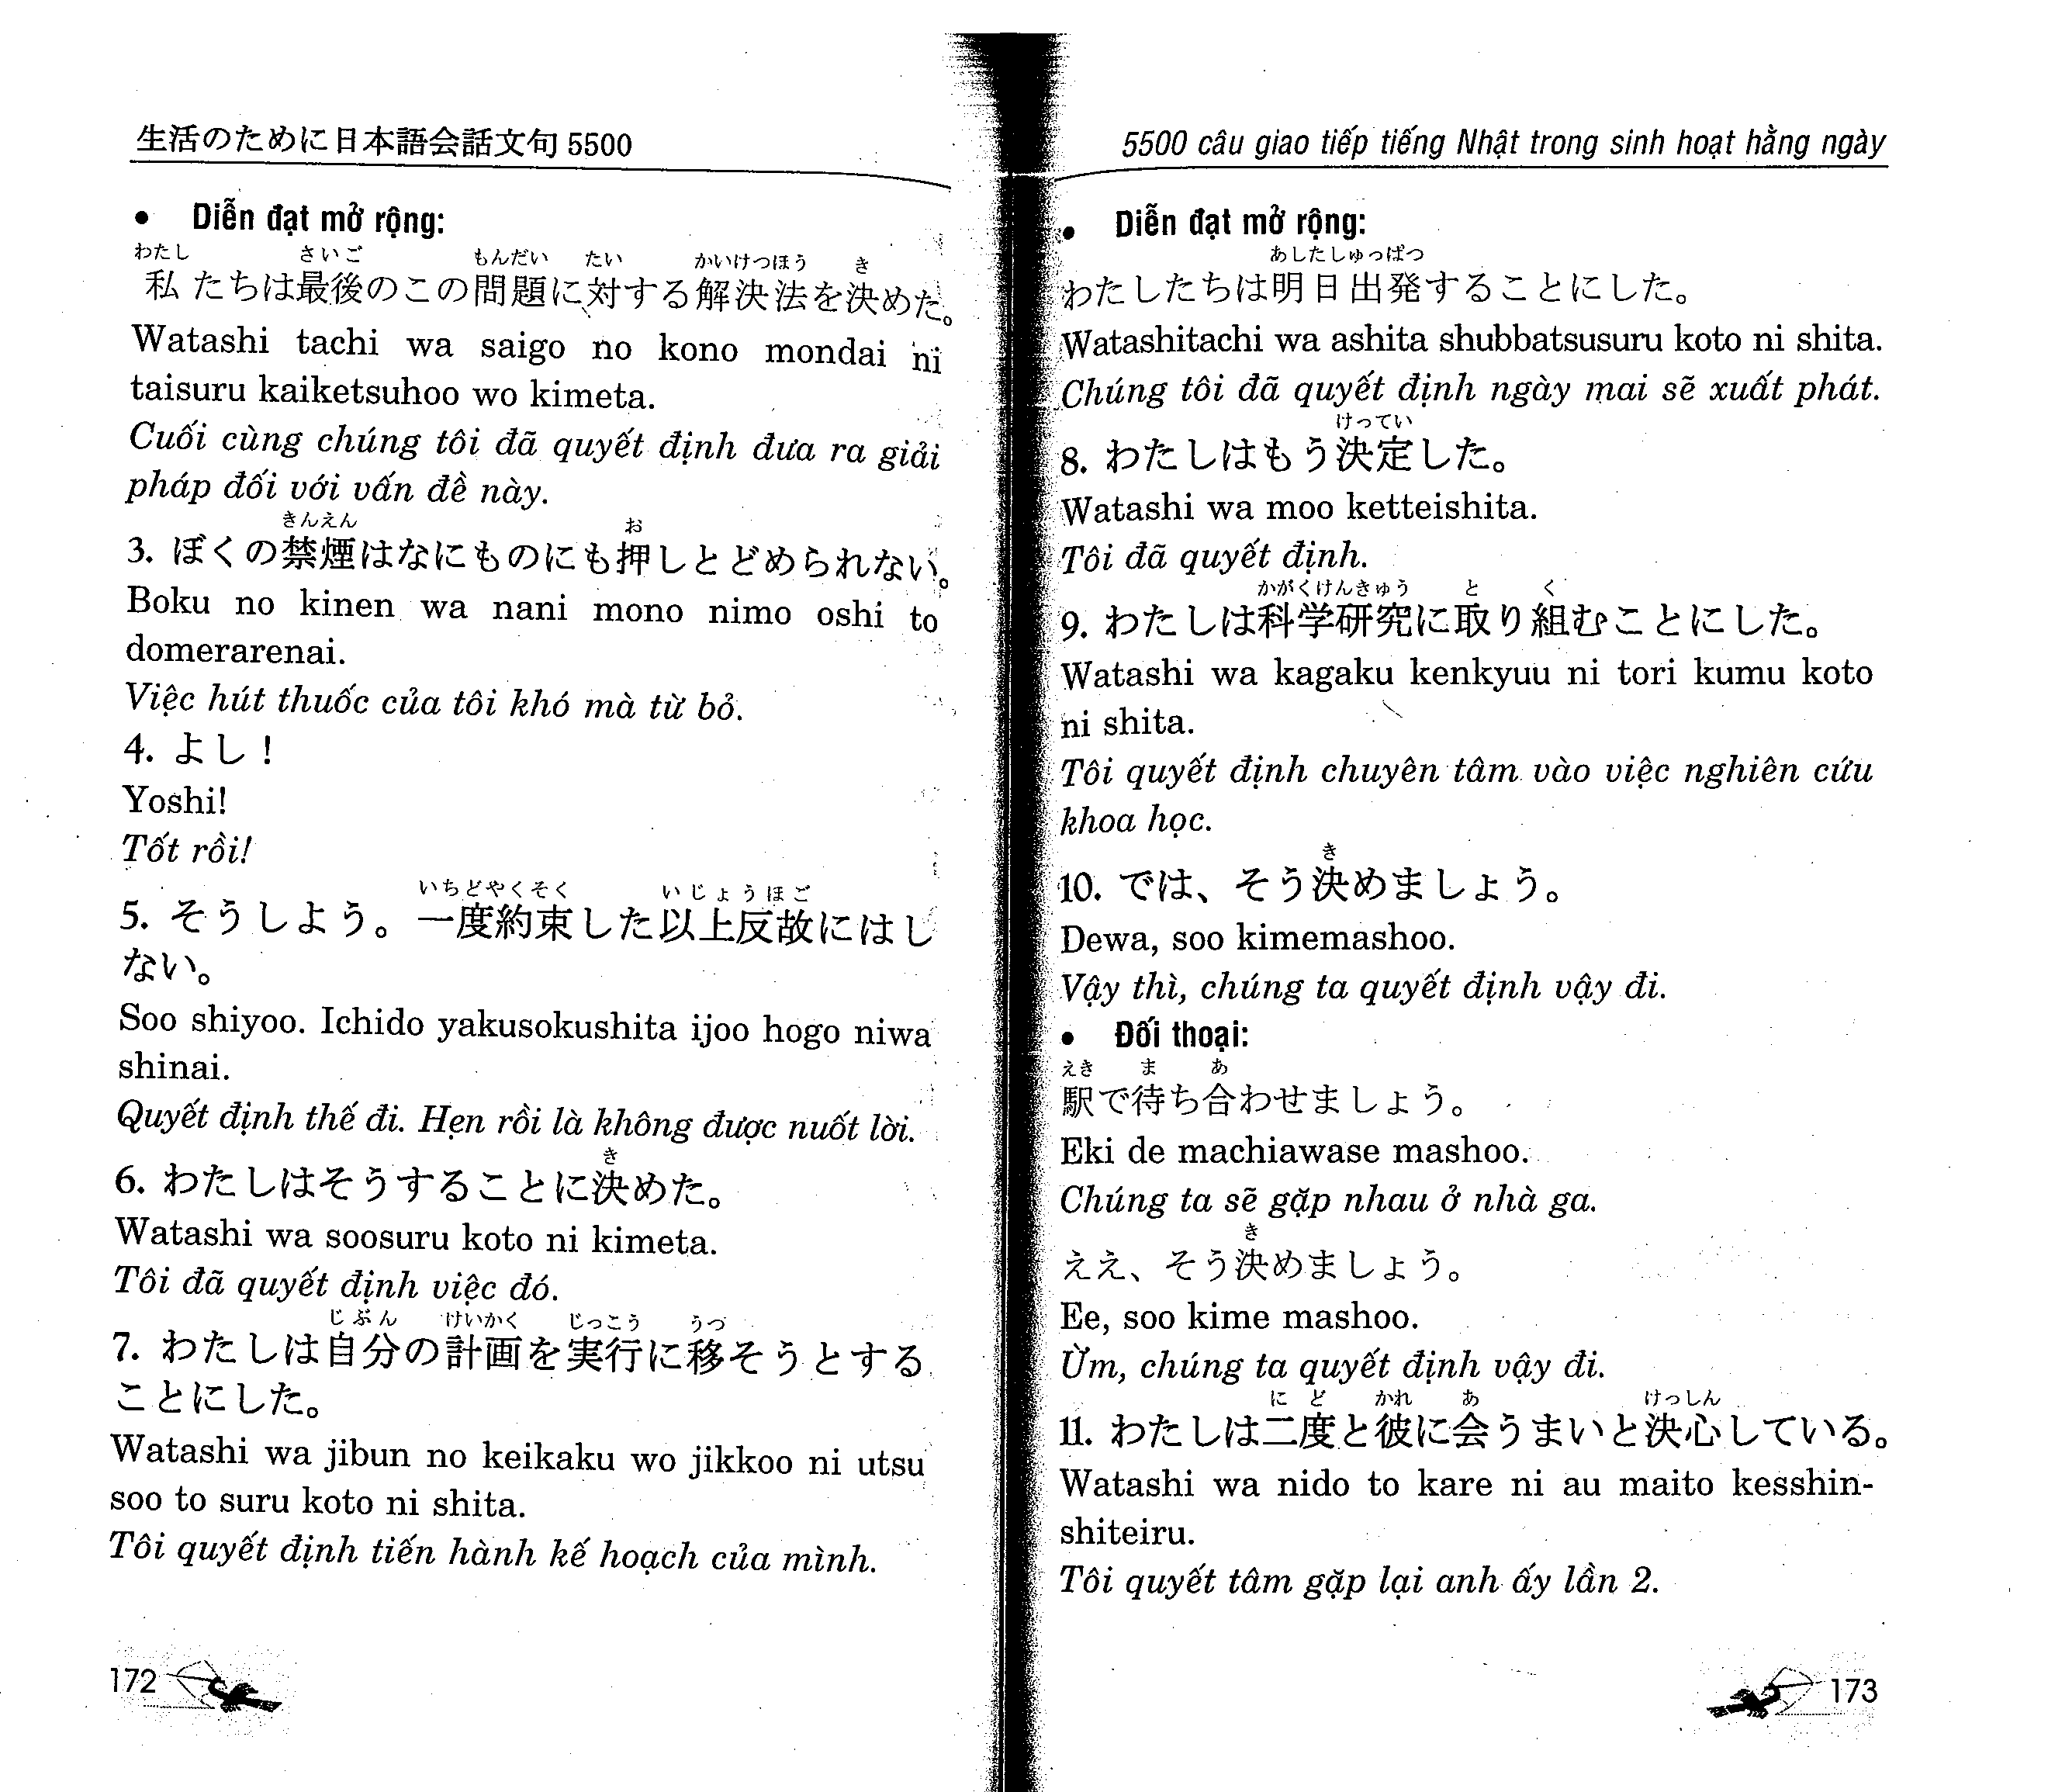 生活のために日本語会話文句 5500
• Diễn đạt mở rộng:
わたし さいご もんだい たい かいけつほう き
私たちは最後のこの問題に対する解決法を決めた。
Watashi tachi wa saigo no kono mondai ni
taisuru kaiketsuhoo wo kimeta.
Cuối cùng chúng tôi đã quyết định đưa ra giải
pháp đối với vấn đề này.
きんえん お
3. ぼくの禁煙はなにものにも押しとどめられない。
Boku no kinen wa nani mono nimo oshi to
domerarenai.
Việc hút thuốc của tôi khó mà từ bỏ.
4. よし！
Yoshi!
Tốt rồi!
いちどやくそく いじょうほご
5. そうしよう。一度約束した以上反故にはし
ない。
Soo shiyoo. Ichido yakusokushita ijoo hogo niwa
shinai.
Quyết định thế đi. Hẹn rồi là không được nuốt lời.
き
6. わたしはそうすることに決めた。
Watashi wa soosuru koto ni kimeta.
Tôi đã quyết định việc đó.
じぶん けいかく じっこう うつ
7. わたしは自分の計画を実行に移そうとする
ことにした。
Watashi wa jibun no keikaku wo jikkoo ni utsu
soo to suru koto ni shita.
Tôi quyết định tiến hành kế hoạch của mình.
172
5500 câu giao tiếp tiếng Nhật trong sinh hoạt hằng ngày
• Diễn đạt mở rộng:
あしたしゅっぱつ
わたしたちは明日出発することにした。
Watashitachi wa ashita shubbatsusuru koto ni shita.
Chúng tôi đã quyết định ngày mai sẽ xuất phát.
けってい
8. わたしはもう決定した。
Watashi wa moo ketteishita.
Tôi đã quyết định.
かがくけんきゅう と く
9. わたしは科学研究に取り組むことにした。
Watashi wa kagaku kenkyuu ni tori kumu koto
ni shita.
Tôi quyết định chuyên tâm vào việc nghiên cứu
khoa học.
き
10. では、そう決めましょう。
Dewa, soo kimemashoo.
Vậy thì, chúng ta quyết định vậy đi.
• Đối thoại:
えき ま あ
駅で待ち合わせましょう。
Eki de machiawase mashoo.
Chúng ta sẽ gặp nhau ở nhà ga.
き
ええ、そう決めましょう。
Ee, soo kime mashoo.
Ừm, chúng ta quyết định vậy đi.
にど かれ あ けっしん
11. わたしは二度と彼に会うまいと決心している。
Watashi wa nido to kare ni au maito kesshin-
shiteiru.
Tôi quyết tâm gặp lại anh ấy lần 2.
173